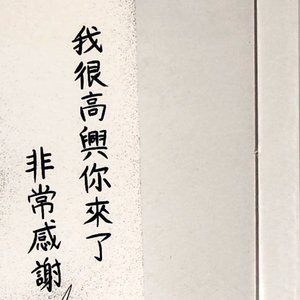 我很高興你來了
非常感謝